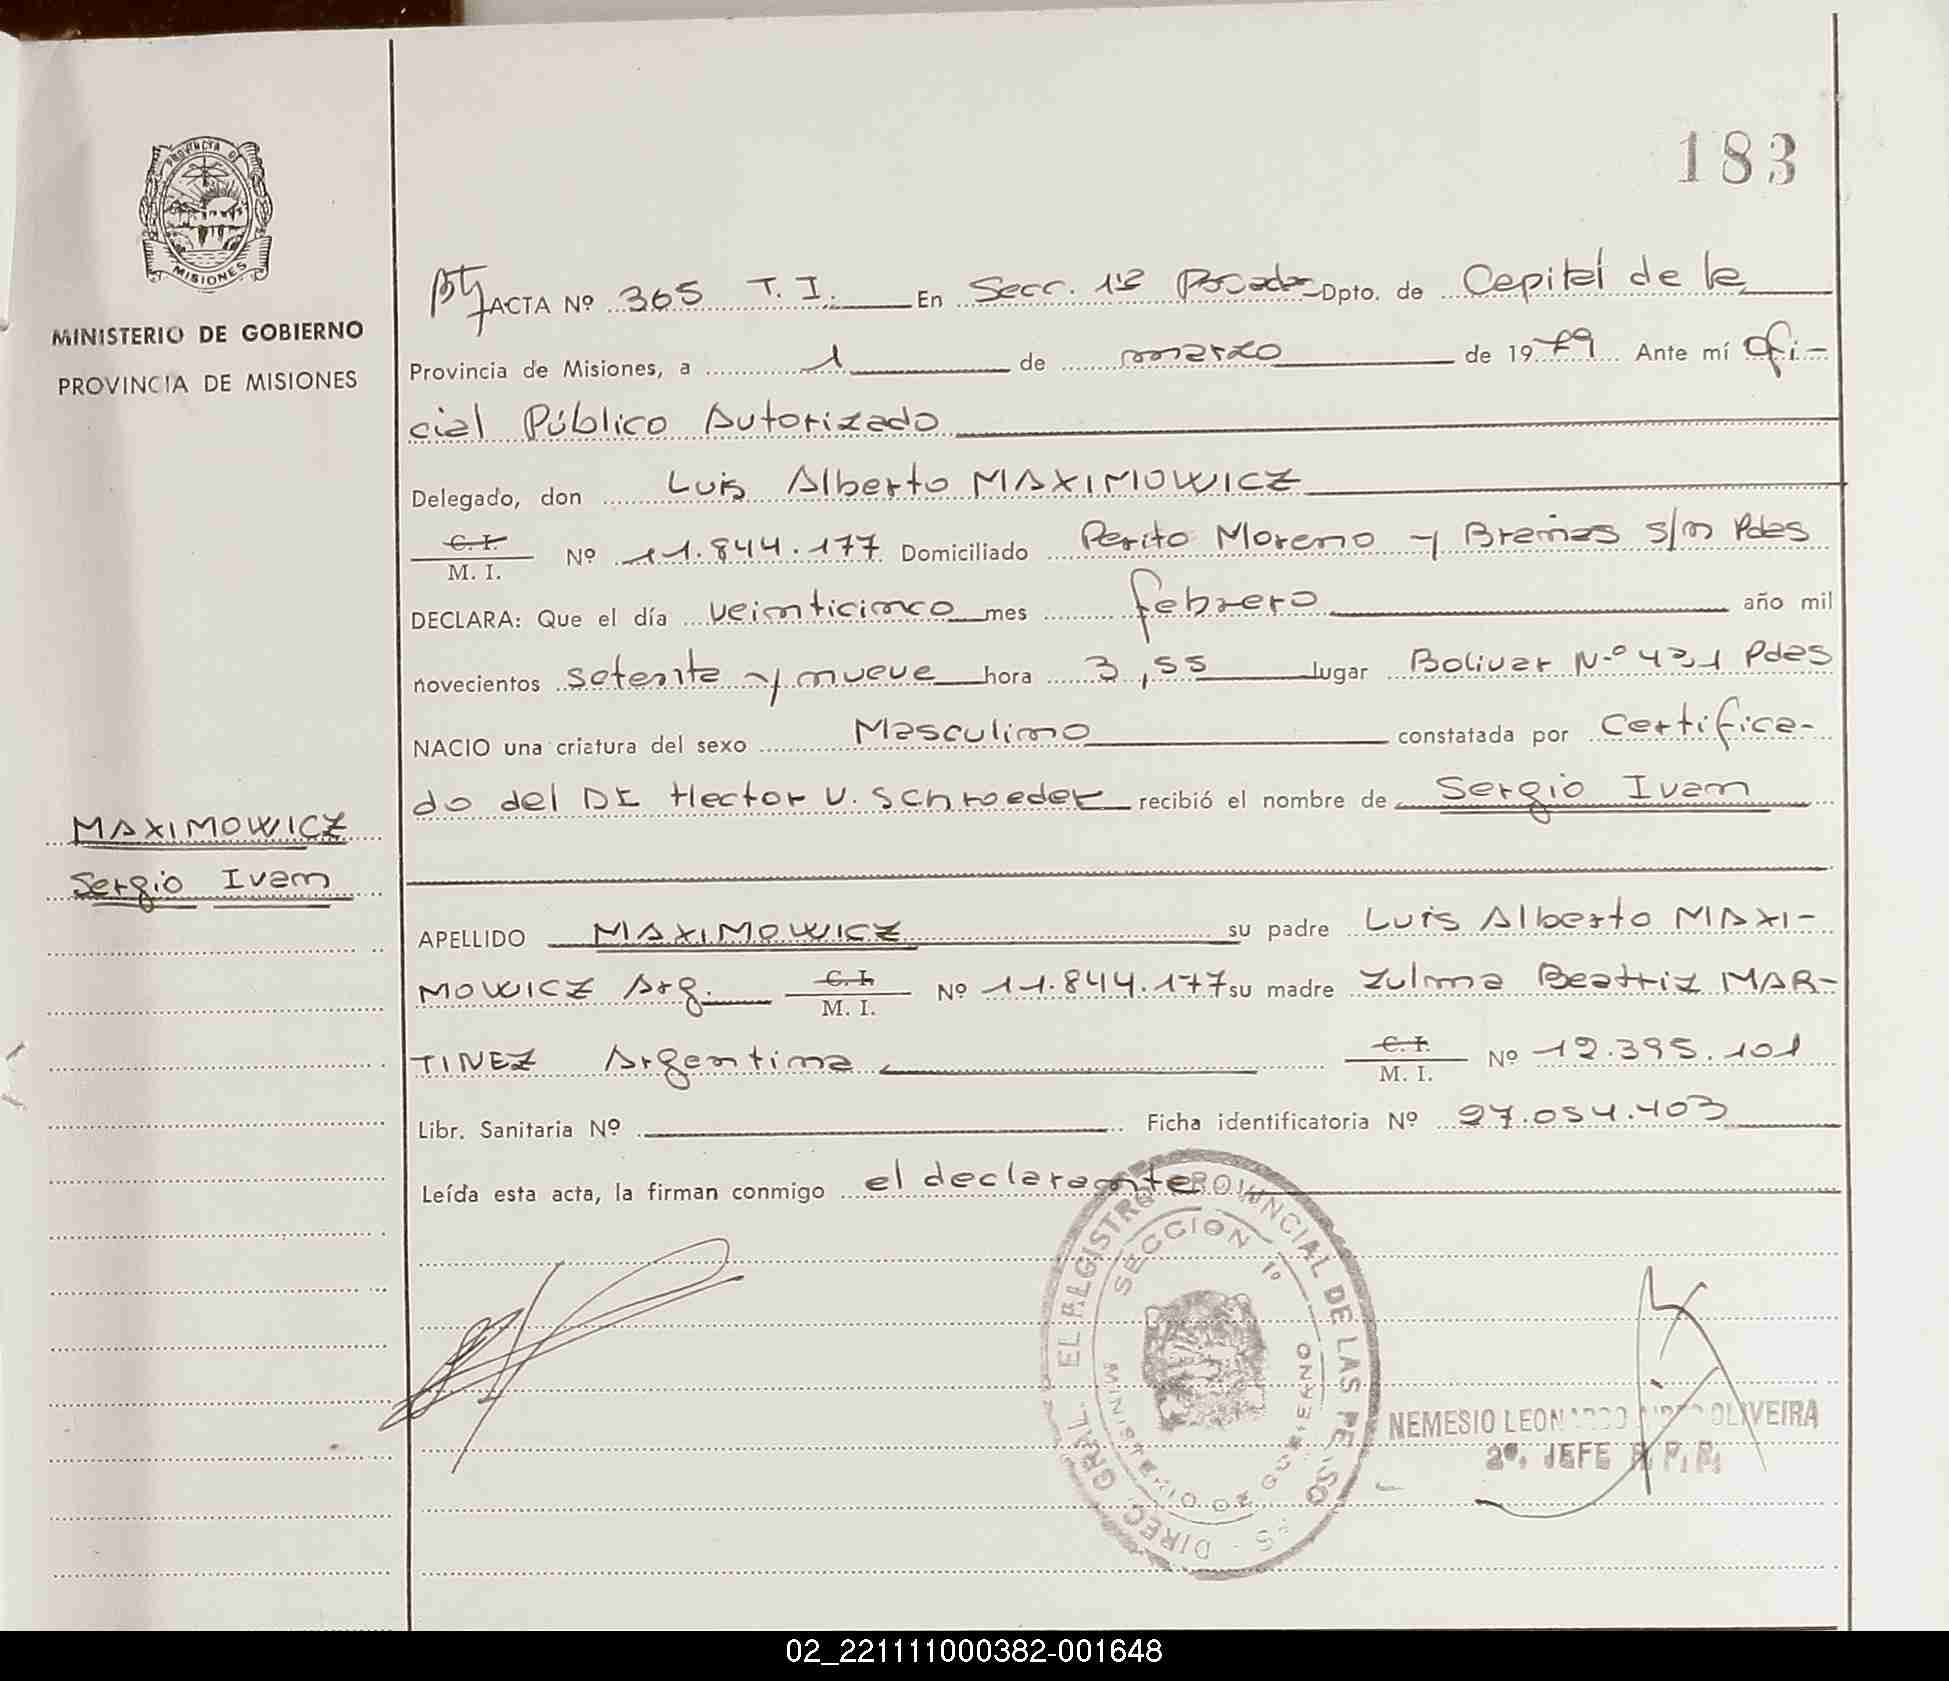 183
PROVINCIA DE
MISIONES
MINISTERIO DE GOBIERNO
PROVINCIA DE MISIONES
MAXIMOWICZ
Sergio Ivan
ACTA Nº 365 T. I. En Secc. 1ª Posadas Dpto. de Capital de la
Provincia de Misiones, a 1 de marzo de 1979 Ante mí Ofi-
cial Público Autorizado
Delegado, don Luis Alberto MAXIMOWICZ
C. I.
M. I. Nº 11.844.177 Domiciliado Perito Moreno y Breñas s/n Pdas
DECLARA: Que el día veinticinco mes febrero año mil
novecientos setenta y nueve hora 3,55 lugar Bolivar N.º 431 Pdas
NACIO una criatura del sexo Masculino constatada por Certifica-
do del Dr Hector V. Schroeder recibió el nombre de Sergio Ivan
APELLIDO MAXIMOWICZ su padre Luis Alberto MAXI-
MOWICZ Arg. C. I.
M. I. Nº 11.844.177 su madre Zulma Beatriz MAR-
TINEZ Argentina C. I.
M. I. Nº 12.395.101
Libr. Sanitaria Nº Ficha identificatoria Nº 27.054.403
Leída esta acta, la firman conmigo el declarante
SECCION 1º
MINISTERIO DE GOBIERNO
NEMESIO LEONARDO OLIVEIRA
2º. JEFE R. P. P.
02_221111000382-001648